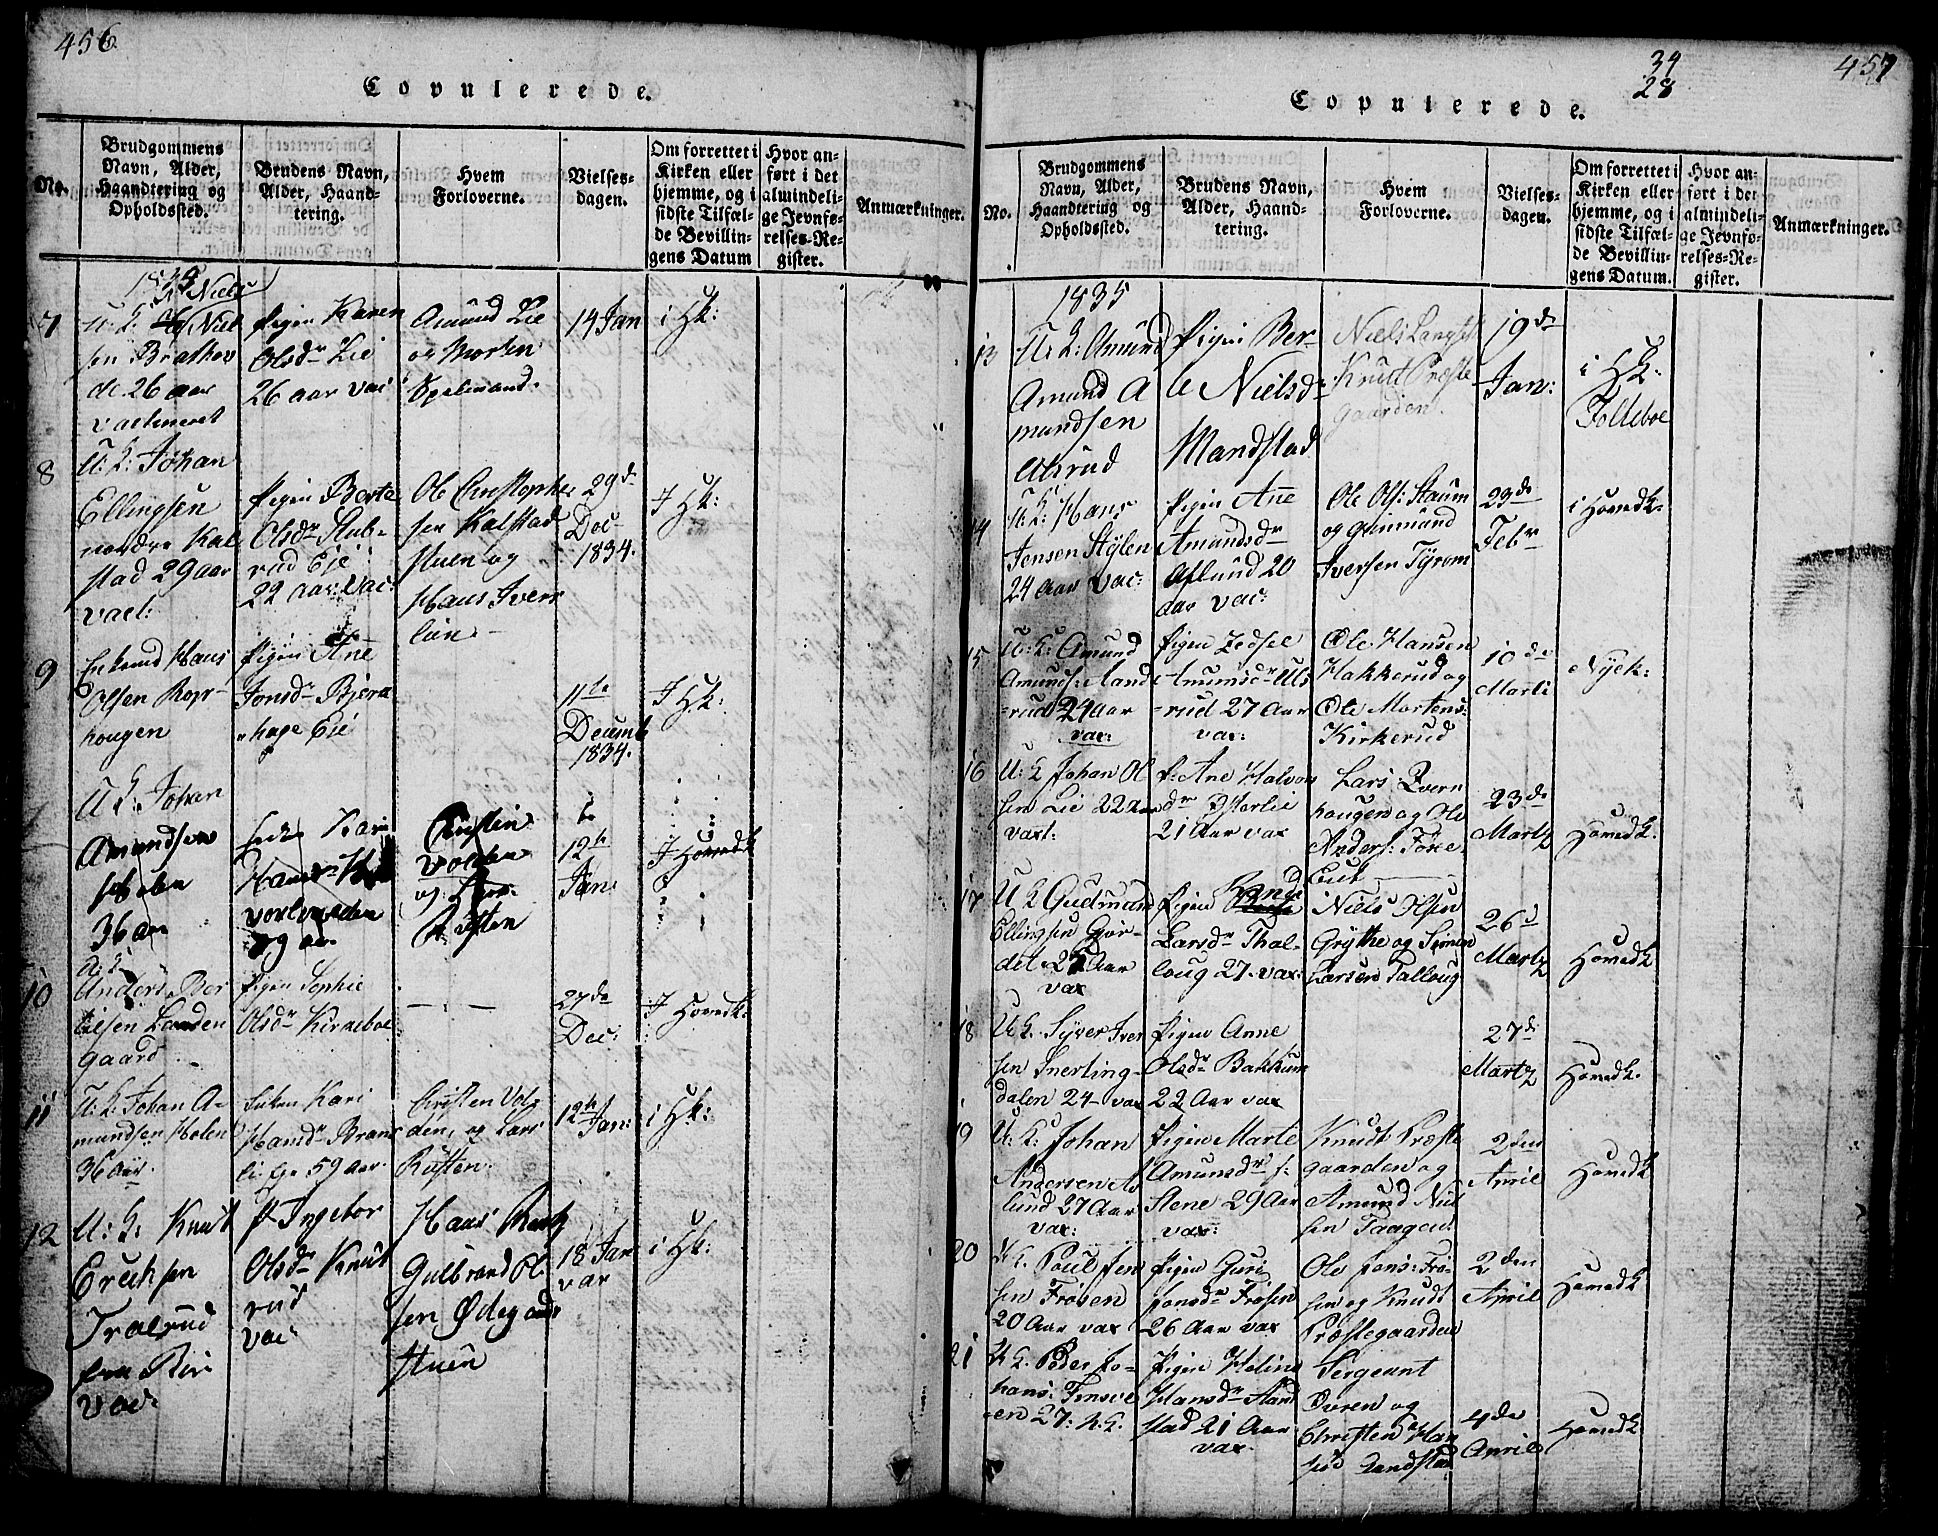 456
Copulerede.
No.
Brudgommens
Navn, Alder,
Haandtering og
Opholdssted.
Brudens Navn,
Alder, Haand-
tering.
Hvem
Forloverne.
Vielses-
dagen.
Om forrettet i
Kirken eller
hjemme, og i
sidste Tilfæl-
de Bevillin-
gens Datum
Hvor an-
ført i det
almindeli-
ge Jevnfø-
relses-Re-
gister.
Anmærkninger.
1834
7
U: K: Niel
sen Brathov
de 26 aar
vaccineret
Pigen Karen
Olsdr Lie
26 aar vac
Amund Lie
og Morten
Spelmand.
14 Jan
i Hk:
8
U: K: Johan
Ellingsen
nordre Kal
stad 29 aar
vacc:
Pigen Berte
Olsdr Stub-
rud Eje
22 aar vac:
Ole Christophe
sen Kalstad
stuen og
Hans Ivers
løn
29de
Dec
1834.
I Hk:
9
Enkemd Hans
Olsen Rop-
hougen
Pigen Ane
Jonsdr Bjerk
hage Eie
11te
Decemb
1834.
I Hk:
U K: Johan
Amundsen
Holen
36 aar
Kari
Hansdr
Christen
Volden
og Lars
Rusten
12te
Jan:
I Hovedk
10
U: K:
Anders Bor
Landen
gaard
Pigen Sophie
Olsdr Kirkeboe
27de
Dec:
I Hovedk:
11
U: K: Johan A-
mundsen Holen
36 aar.
Enken Kari
Hansdr Brans
lie Eje 59 aar.
Christen Vol-
den, og Lars
Rusten.
12te Jan:
i Hk:
12
U: K: Knut
Ericksen
Tralrud
fra Biri
vac.
P Ingebor
Olsdr Knut
rud
vac.
Hans
Gulbrand Ol
sen Ødegaard
stuen
18 Jan
var
i Hk:
457
34
28
Copulerede.
No.
Brudgommens
Navn, Alder,
Haandtering og
Opholdssted.
Brudens Navn,
Alder, Haand-
tering.
Hvem
Forloverne.
Vielses-
dagen.
Om forrettet i
Kirken eller
hjemme, og i
sidste Tilfæl-
de Bevillin-
gens Datum.
Hvor an-
ført i det
almindeli-
ge Jevnfø-
relses-Re-
gister.
Anmærkninger.
1835
13
U: K: Amund
Amund A
mundsen
Ulsrud
Pigen Ber-
te Nielsdr
Mandstad
Niels Langset
Knutt Præste
gaarden.
19de
Jan:
i Hk:
Folleboe
14
U: K: Hans
Jensen Stylen
24 Aar vac:
Pigen Ane
Amundsdr
Aflund 20
aar vac:
Ole Ols: Staum
og Gunmund
Iversen Tyrom
23de
Febr
i Hovedk:
15
U: K: Amund
Amunds: Aand
rud 24 Aar
vac:
Pigen Zedsel
Amunsdr Uls
rud 27 Aar
vax:
Ole Hansen
Hakkerud og
Ole Mortens:
Kirkerud
10de
Marti
Nyek:
16
U: K Johan Ol
sen Lie 22 Aar
vaxt:
P: Ane Halvors
dr Østerlie
21 Aar vax
Lars: Qvern
hougen og Ole
Anders: Tone
Eiet
23de
Martz
Hovedk.
17
U K Gudmund
Ellingsen Gjør-
det 25 Aar
vax
Pigen Rande
Larsdr Thal-
loug 27. vax:
Niels Olsen
Grytte og Simen
Larsen Talloug
26d
Martz
Hovedk
18
U K. Syver Iver
sen Snerting-
dalen 24 vax
Pigen Anne
Olsdr Bakkum
22 Aar vax
27de
Martz
Hovedk.
19
U: K: Johan
Andersen As
lund 27 Aar
vax:
Pigen Marte
Amunsdr s:
Aene 29 Aar
vax:
Knudt Præste
gaarden og
Amund Niel
sen Taagen
2den
April
Hovedk
20
U K. Poul Jen
sen Frøsen
20 Aar vax
Pigen Guri
Jonsdr Frøsen
26 Aar vax
Ole Jons: Frø-
sen og Knudt
Præstegaarden
2den
April
Hovedk
21
U K. Peder Jo-
hans: Finsve
en 27: A. G.
Pigen Heline
Hansdr Sand
stad 21 Aar
vax.
Sergeant
Øvren og
Christen Han
sen Sandstad
4de
April
Hovedk